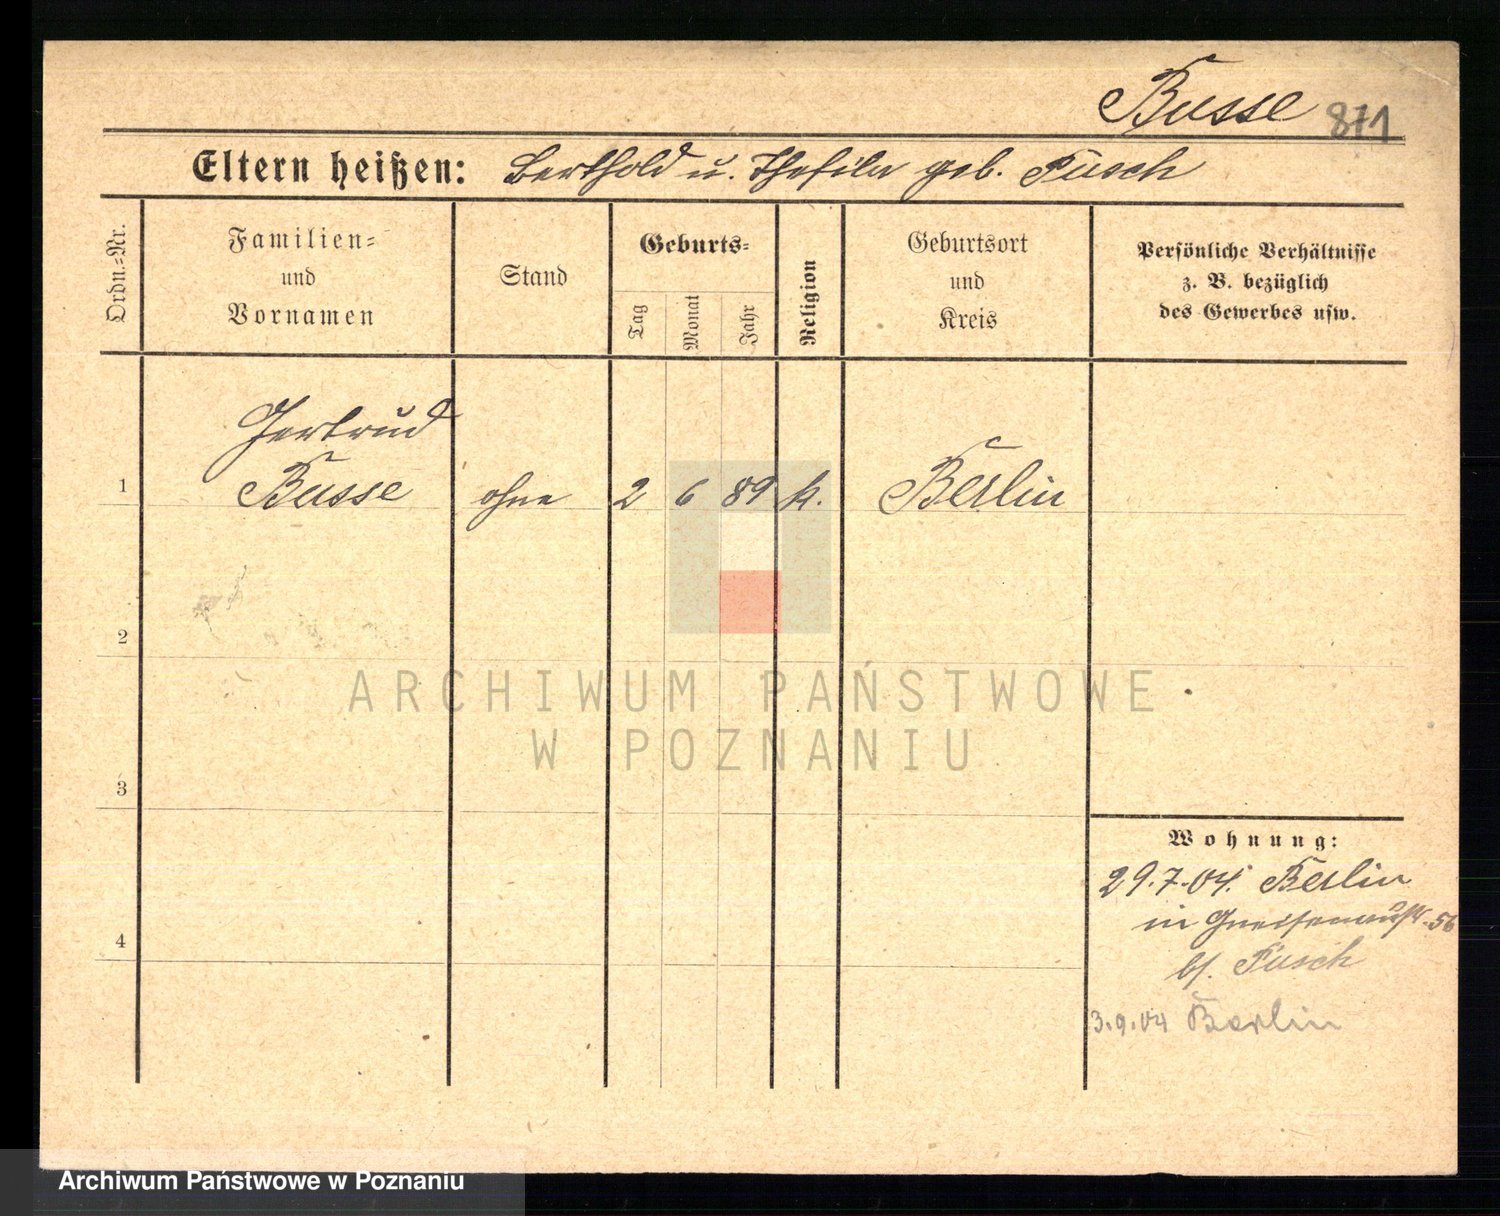 Busse 871
Eltern heißen: Berthold u. Thefila geb. Püsch
Ordn.-Nr.
Familien-
und
Vornamen
Stand
Geburts-
Tag
Monat
Jahr
Religion
Geburtsort
und
Kreis
Persönliche Verhältnisse
z. B. bezüglich
des Gewerbes usw.
Gertrud
1 Busse ohne 2 6 89 k. Berlin
2
ARCHIWUM PAŃSTWOWE
W POZNANIU
3
Wohnung:
29.7.04. Berlin
in Gneisenaustr. 56
4
b/. Püsch
3.9.04 Berlin
Archiwum Państwowe w Poznaniu